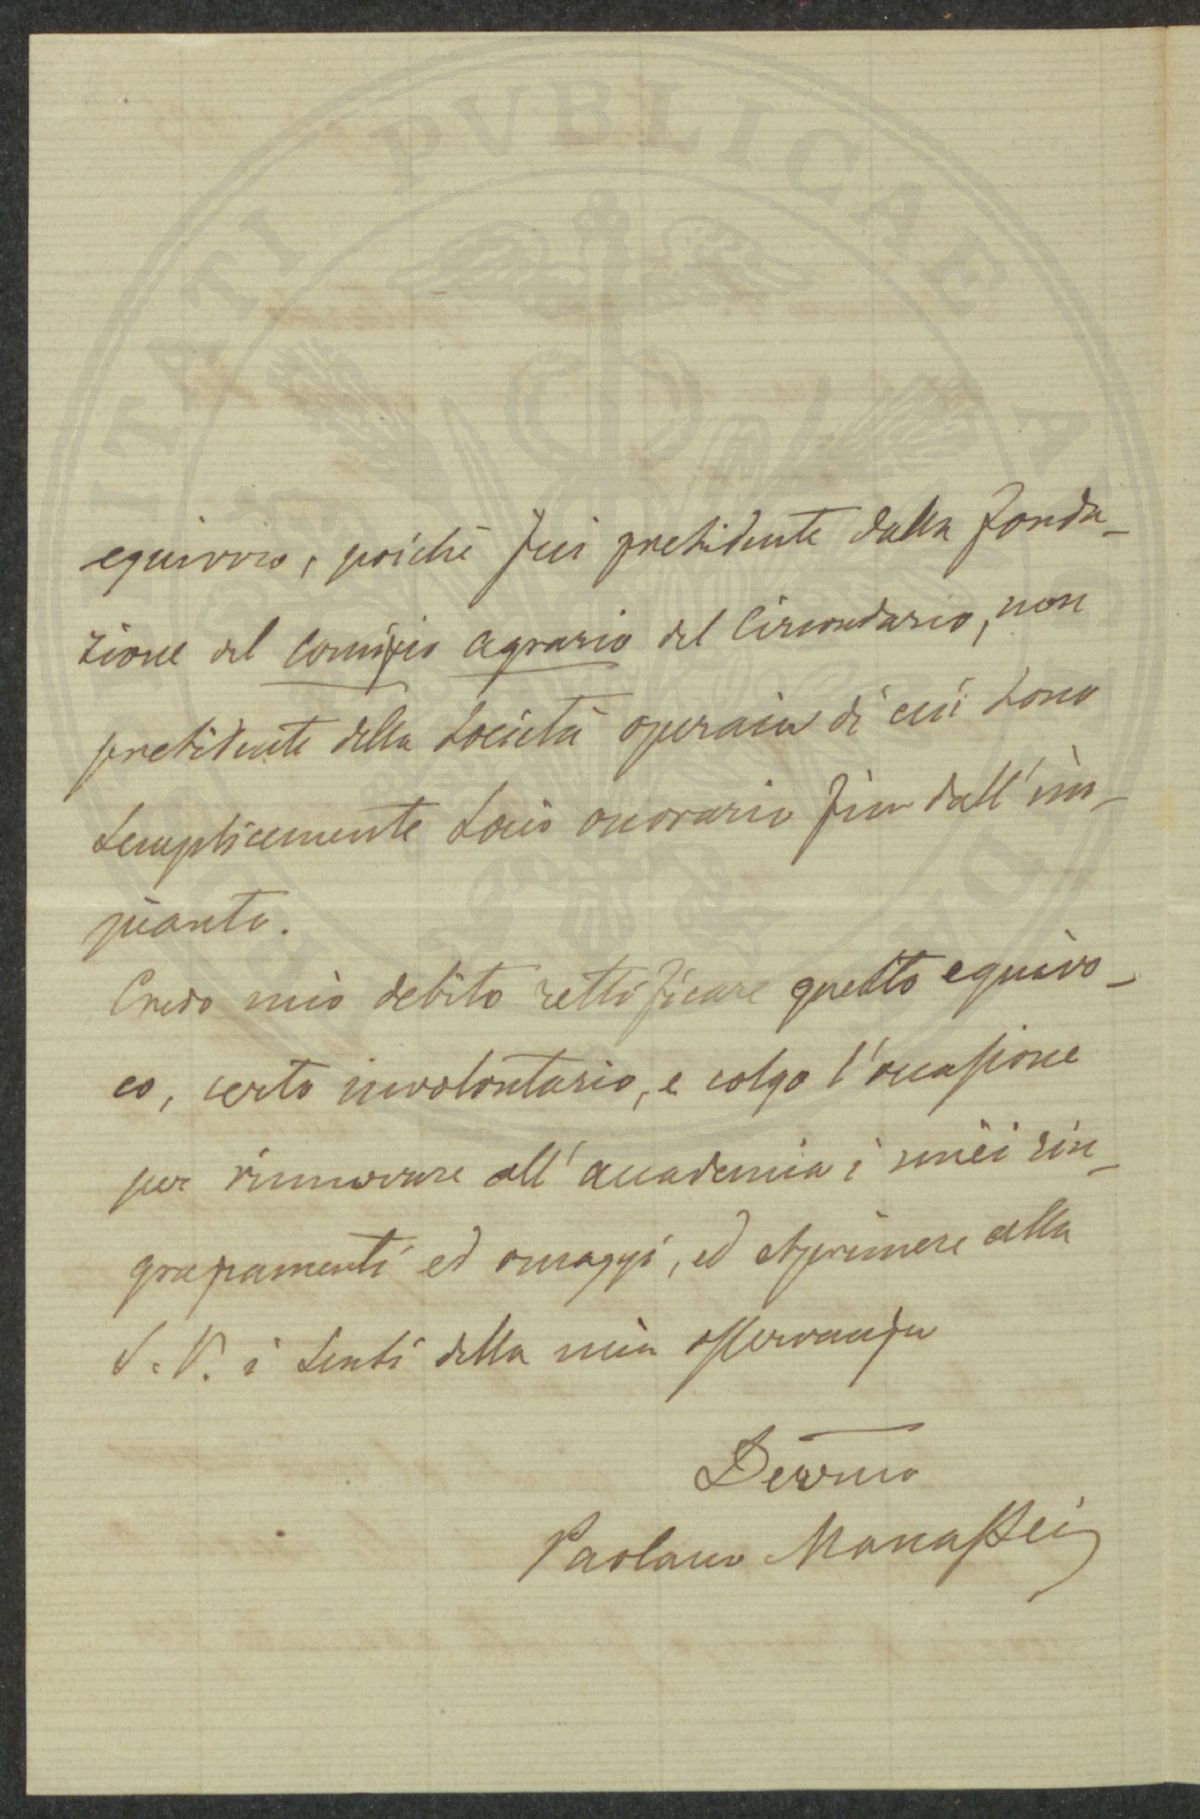 equivoco, poiché fui presidente dalla fonda-
zione del Comizio agrario del Circondario, non
presidente della Società operaia di cui sono
semplicemente Socio onorario fin dall'im-
pianto.
Credo mio debito rettificare questo equivo-
co, certo involontario, e colgo l'occasione
per rinnovare all'accademia i miei rin-
graziamenti ed omaggi, ed esprimere alla
S. V. i sensi della mia osservanza
Devmo
Paolano Manassei
PVBLICAE